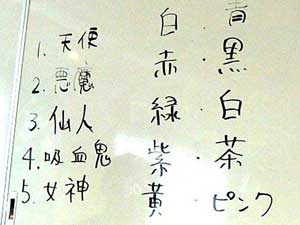 1. 天使 白・青
2. 悪魔 赤・黒
3. 仙人 緑・白
4. 吸血鬼 紫・茶
5. 女神 黄・ピンク